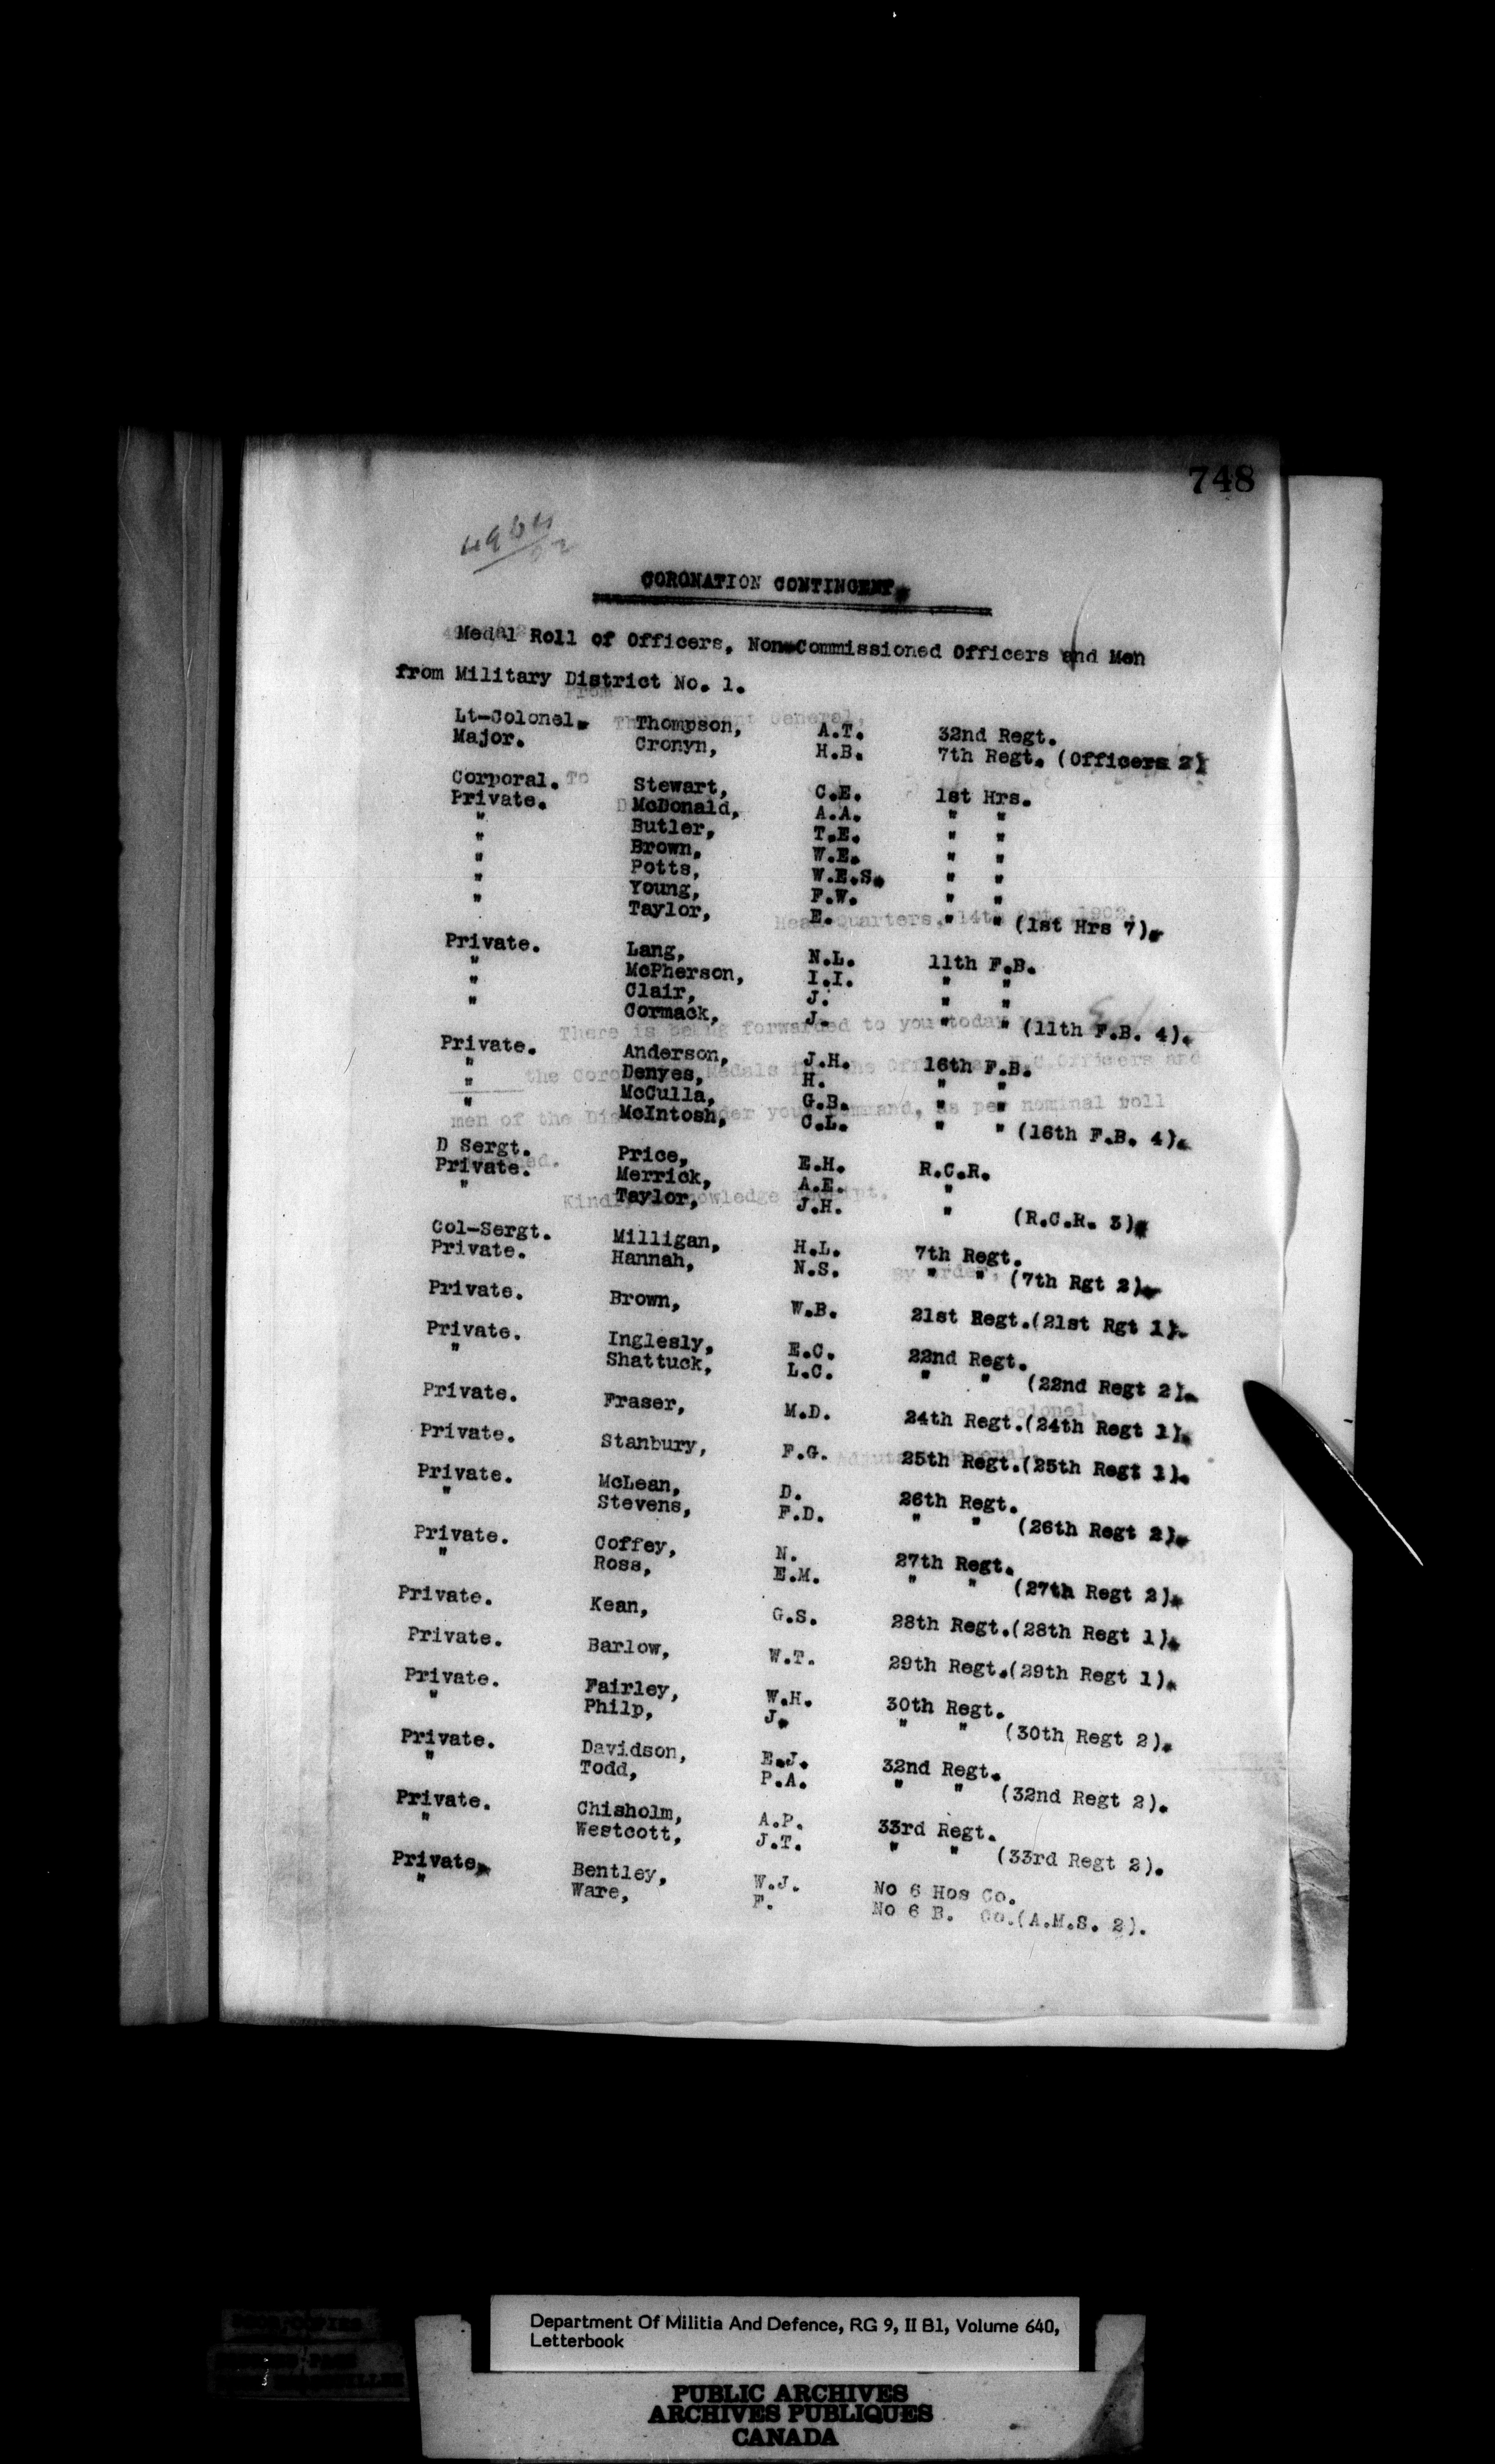 748
CORONATION CONTINGENT.
Medal Roll of Officers, Non-Commissioned Officers and Men
from Military District No. 1.
Lt-Colonel. Thompson, A.T. 32nd Regt.
Major. Cronyn, H.B. 7th Regt. (Officers 2)
Corporal. Stewart, C.E. 1st Hrs.
Private. McDonald, A.A. " "
" Butler, T.E. " "
" Brown, W.E. " "
" Potts, W.E.S. " "
" Young, F.W. " "
" Taylor, E. " " (1st Hrs 7).
Private. Lang, N.L. 11th F.B.
" McPherson, I.I. " "
" Clair, J. " "
" Cormack, J. " " (11th F.B. 4).
Private. Anderson, J.H. 16th F.B.
" Denyes, H. " "
" McCulla, G.B. " "
" McIntosh, C.L. " " (16th F.B. 4).
D Sergt. Price, E.H. R.C.R.
Private. Merrick, A.E. "
" Taylor, J.H. " (R.C.R. 3).
Col-Sergt. Milligan, H.L. 7th Regt.
Private. Hannah, N.S. " " (7th Rgt 2).
Private. Brown, W.B. 21st Regt.(21st Rgt 1).
Private. Inglesly, E.C. 22nd Regt.
" Shattuck, L.C. " " (22nd Regt 2).
Private. Fraser, M.D. 24th Regt.(24th Regt 1).
Private. Stanbury, F.G. 25th Regt.(25th Regt 1).
Private. McLean, D. 26th Regt.
" Stevens, F.D. " " (26th Regt 2).
Private. Coffey, N. 27th Regt.
" Ross, E.M. " " (27th Regt 2).
Private. Kean, G.S. 28th Regt.(28th Regt 1).
Private. Barlow, W.T. 29th Regt.(29th Regt 1).
Private. Fairley, W.H. 30th Regt.
" Philp, J. " " (30th Regt 2).
Private. Davidson, E.J. 32nd Regt.
" Todd, P.A. " " (32nd Regt 2).
Private. Chisholm, A.P. 33rd Regt.
" Westcott, J.T. " " (33rd Regt 2).
Private. Bentley, W.J. No 6 Hos Co.
" Ware, F. No 6 B. Co.(A.M.S. 2).
Department Of Militia And Defence, RG 9, II B1, Volume 640,
Letterbook
PUBLIC ARCHIVES
ARCHIVES PUBLIQUES
CANADA